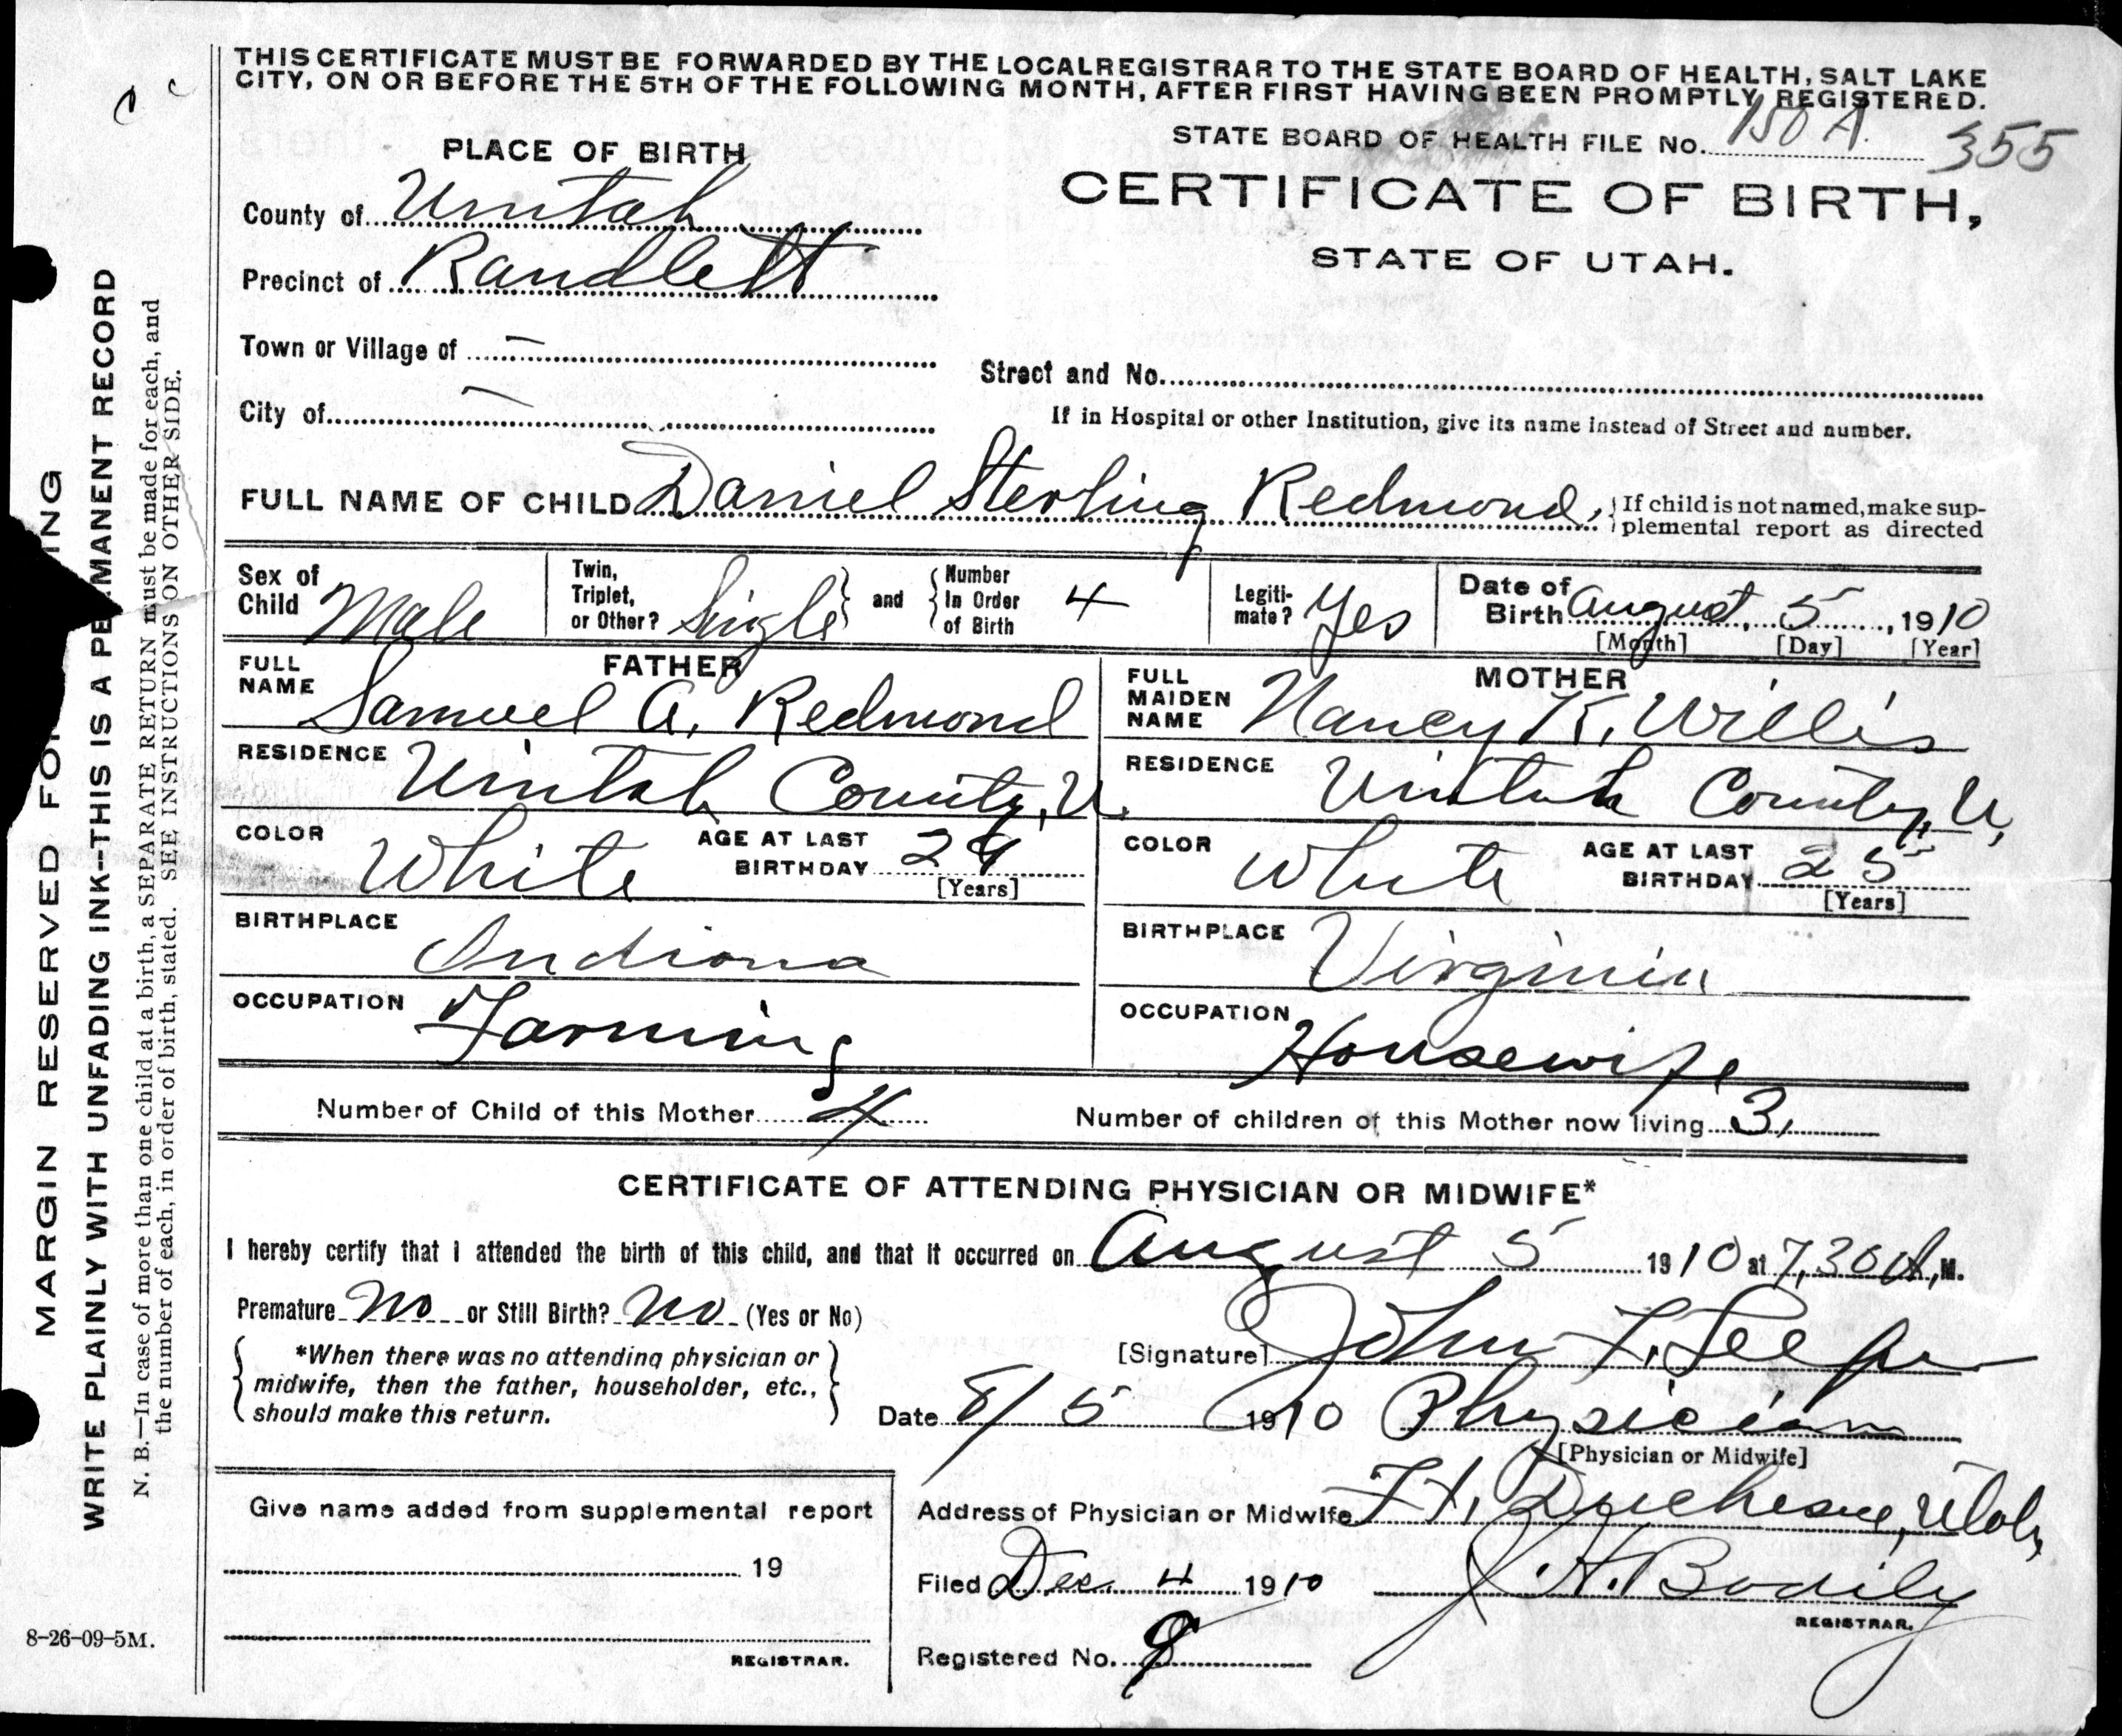 THIS CERTIFICATE MUST BE FORWARDED BY THE LOCAL REGISTRAR TO THE STATE BOARD OF HEALTH, SALT LAKE
CITY, ON OR BEFORE THE 5TH OF THE FOLLOWING MONTH, AFTER FIRST HAVING BEEN PROMPTLY REGISTERED.
STATE BOARD OF HEALTH FILE No. 150 A. 355
PLACE OF BIRTH
CERTIFICATE OF BIRTH,
STATE OF UTAH.
County of Uintah
Precinct of Randlett
Town or Village of –
Street and No.
City of –
If in Hospital or other Institution, give its name instead of Street and number.
FULL NAME OF CHILD Daniel Sterling Redmond, If child is not named, make sup-
plemental report as directed
Sex of Child Male
Twin, Triplet, or Other? Single and Number In Order of Birth 4
Legiti-mate? Yes
Date of Birth August, 5, 1910
[Month] [Day] [Year]
FATHER
FULL NAME Samuel A. Redmond
RESIDENCE Uintah County, U.
COLOR White AGE AT LAST BIRTHDAY 29
[Years]
BIRTHPLACE Indiana
OCCUPATION Farming
MOTHER
FULL MAIDEN NAME Nancy K. Willis
RESIDENCE Uintah County, U,
COLOR White AGE AT LAST BIRTHDAY 25
[Years]
BIRTHPLACE Virginia
OCCUPATION Housewife
Number of Child of this Mother 4 Number of children of this Mother now living 3,
CERTIFICATE OF ATTENDING PHYSICIAN OR MIDWIFE*
I hereby certify that I attended the birth of this child, and that it occurred on August 5 1910 at 7,30 A, M.
Premature No or Still Birth? No (Yes or No)
*When there was no attending physician or
midwife, then the father, householder, etc.,
should make this return.
[Signature] John F.
Date 8/5 1910 Physician
[Physician or Midwife]
Address of Physician or Midwife Ft. Duchesne, Utah,
Give name added from supplemental report
19
REGISTRAR.
Filed Dec. 4 1910 J. H. Bodily
REGISTRAR.
Registered No.
8-26-09-5M.
MARGIN RESERVED FO ING
WRITE PLAINLY WITH UNFADING INK--THIS IS A PE MANENT RECORD
N. B.—In case of more than one child at a birth, a SEPARATE RETURN must be made for each, and
the number of each, in order of birth, stated. SEE INSTRUCTIONS ON OTHER SIDE.